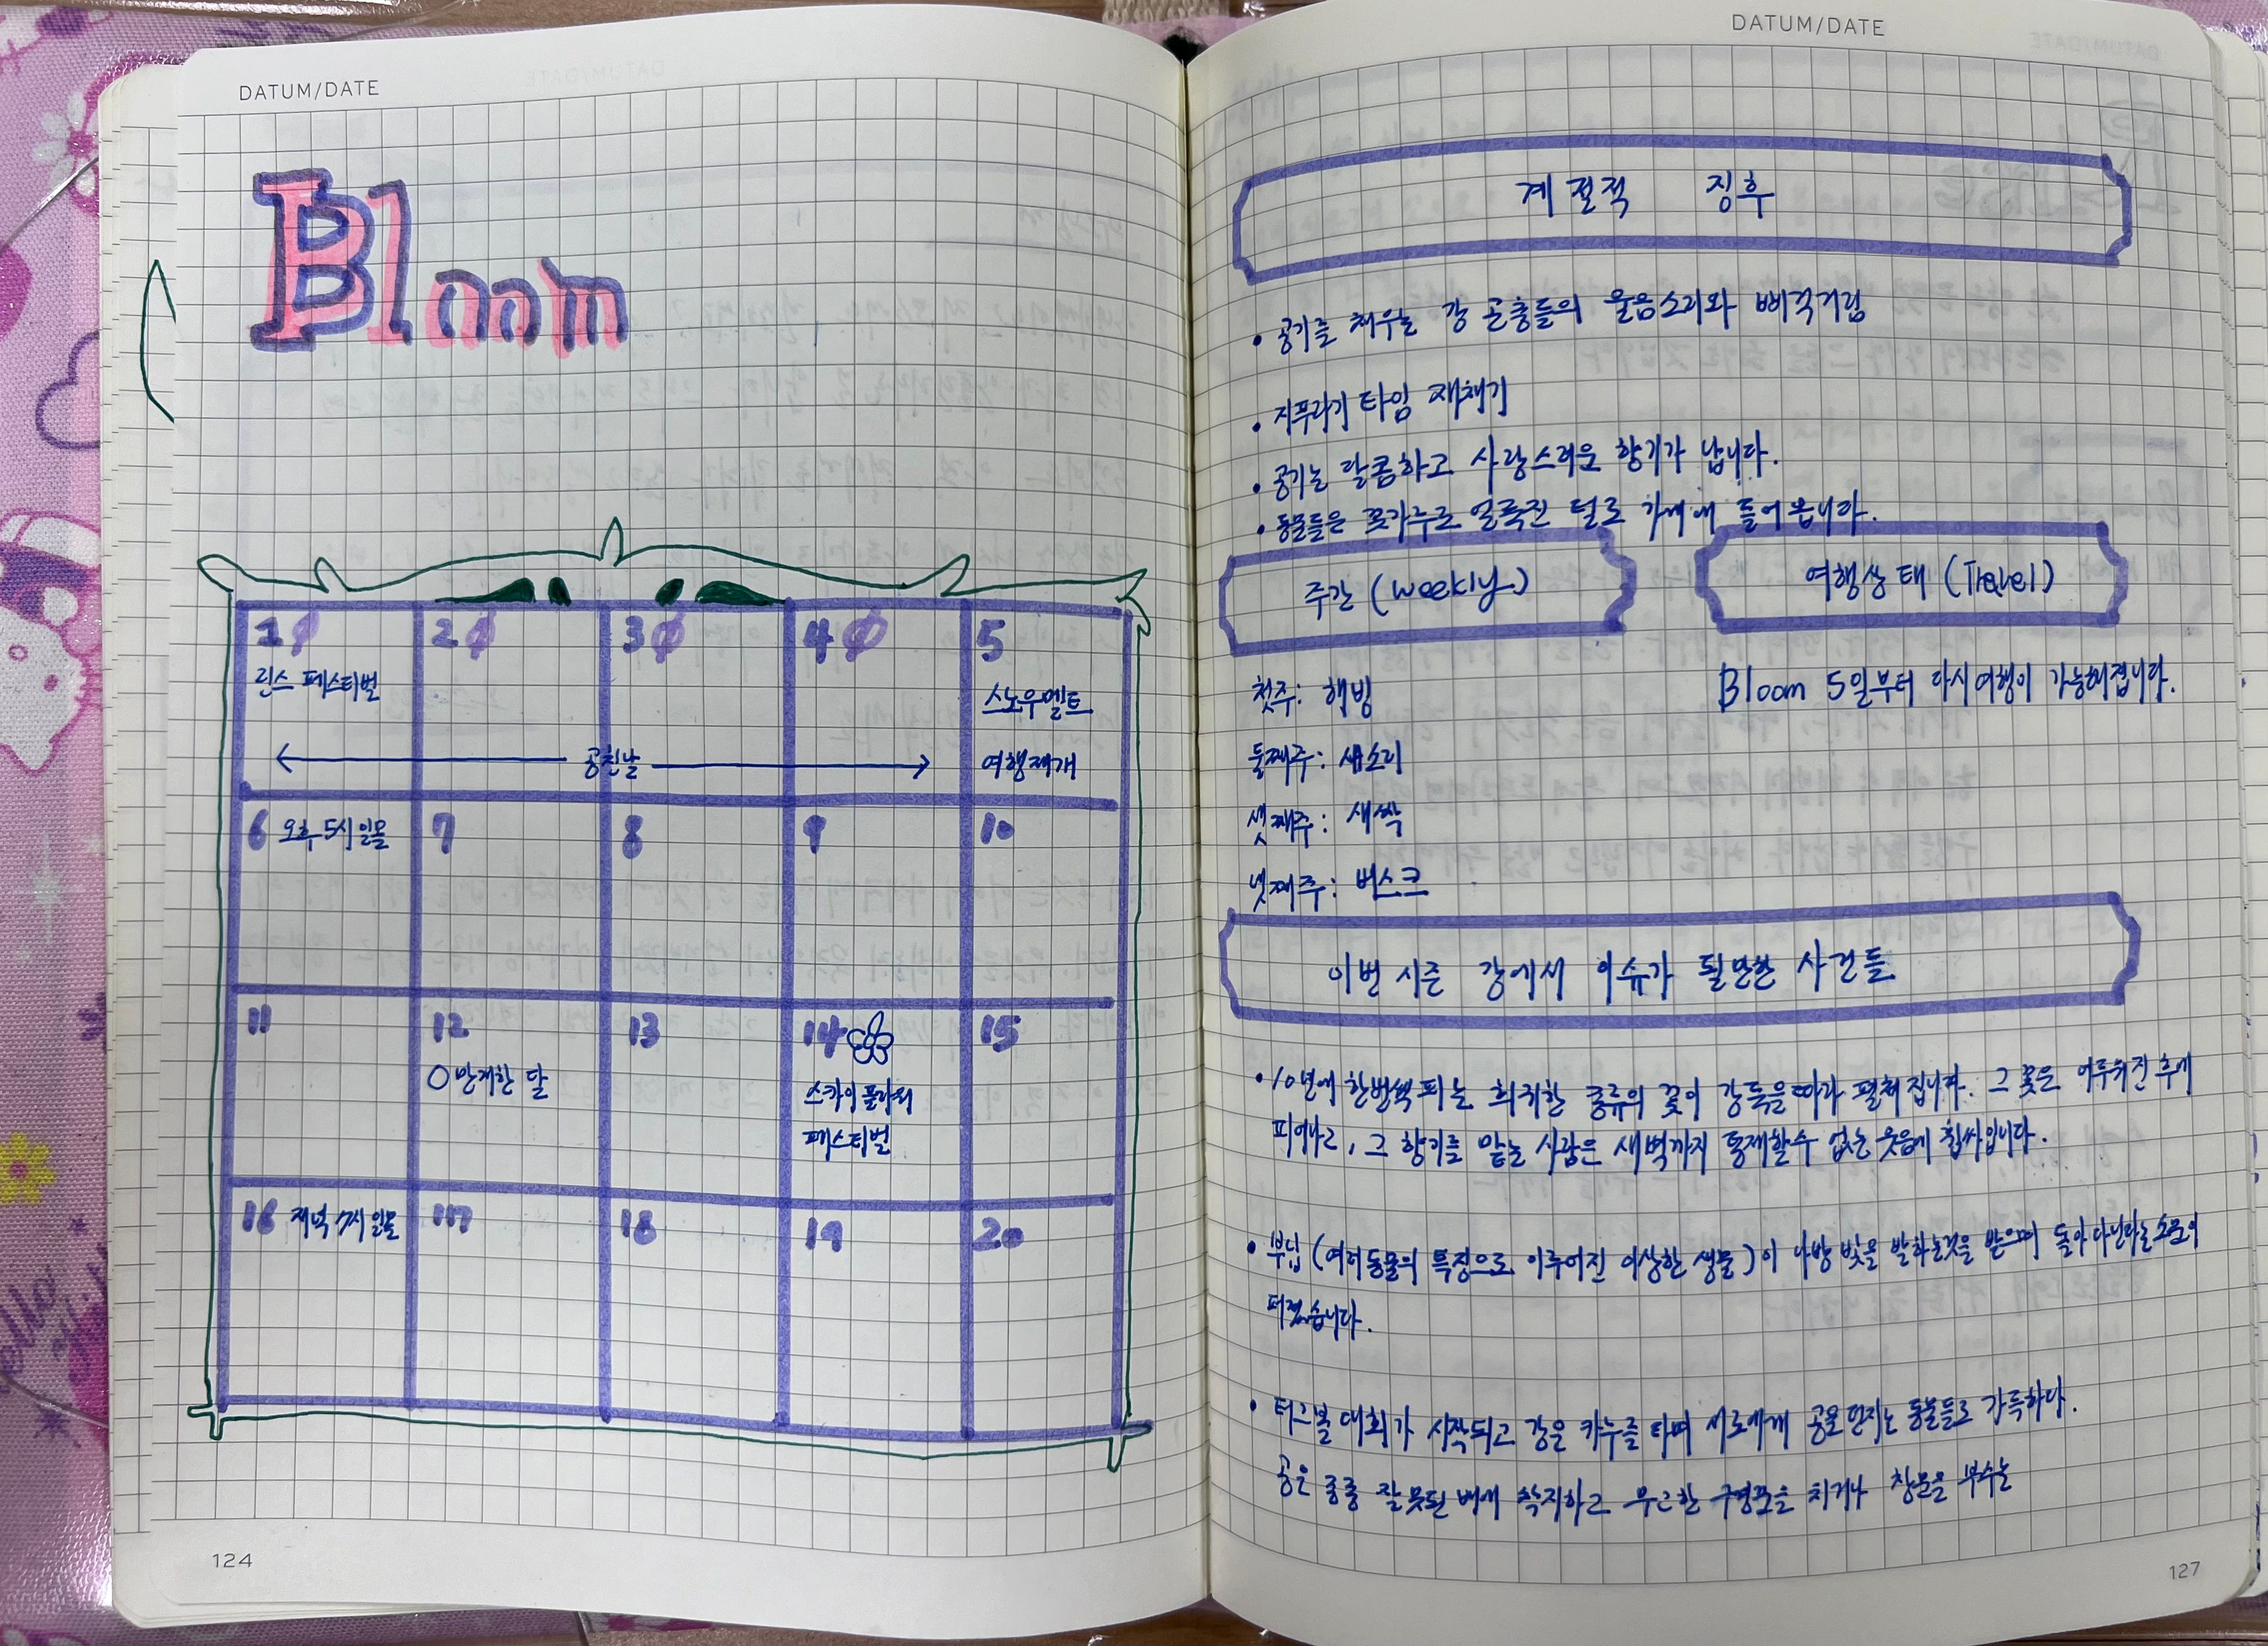 DATUM/DATE
Bloom
1 Ø
2 Ø
3 Ø
4 Ø
5
린스 페스티벌
스노우멜트
← 공친날 →
여행재개
6 오후 5시 일몰
7
8
9
10
11
12
13
14
15
만개한 달
스카이 플라워
페스티벌
16 저녁 7시 일몰
17
18
19
20
124
DATUM/DATE
계절적 징후
• 공기를 채우는 강 곤충들의 울음소리와 삐걱거림
• 지푸라기 타임 재채기
• 공기는 달콤하고 사랑스러운 향기가 납니다.
• 동물들은 꽃가루로 얼룩진 털로 가게에 들어옵니다.
주간 (weekly)
여행상태 (Travel)
첫주: 해빙
Bloom 5일부터 다시 여행이 가능해집니다.
둘째주: 새소리
셋째주: 새싹
넷째주: 버스크
이번 시즌 강에서 이슈가 될만한 사건들
• 10년에 한번씩 피는 희귀한 종류의 꽃이 강둑을 따라 펼쳐집니다. 그 꽃은 어두워진 후에
피어나고, 그 향기를 맡는 사람은 새벽까지 통제할수 없는 웃음에 휩싸입니다.
• 부닙 (여러동물의 특징으로 이루어진 이상한 생물)이 나방 빛을 발하는것을 받으며 돌아다닌다는 소문이
퍼졌습니다.
• 터그볼 대회가 시작되고 강은 카누를 타며 서로에게 공을 던지는 동물들로 가득하다.
공은 종종 잘못된 배에 착지하고 무고한 구경꾼을 치거나 창문을 부수는
127